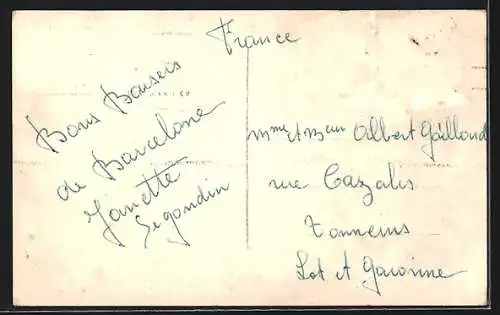 France
Bons Baisers
de Barcelone
Janette
Segondin
Mme et Meur Albert Gaillard
rue Cazalis
Tonneins
Lot et Garonne